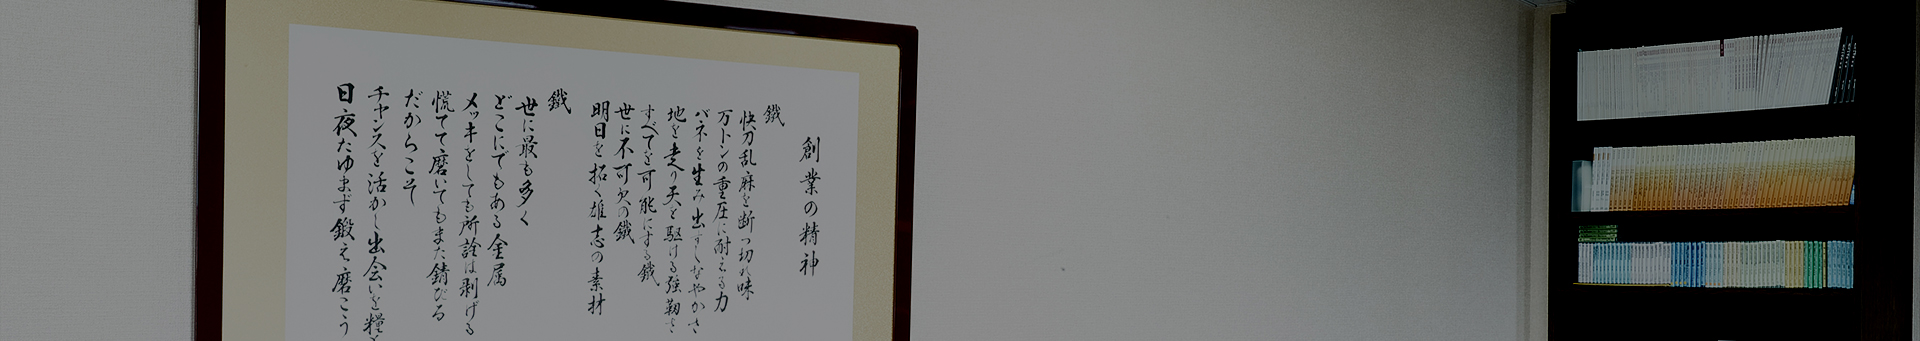 創業の精神
鐵
快刀乱麻を断つ切れ味
万トンの重圧に耐える力
バネを生み出すしなやかさ
地を走り天を駆ける強靭さ
すべてを可能にする鐵
世に不可欠の鐵
明日を拓く雄志の素材
鐵
世に最も多く
どこにでもある金属
メッキをしても所詮は剥げる
慌てて磨いてもまた錆びる
だからこそ
チャンスを活かし出会いを糧と
日夜たゆまず鍛え磨こう